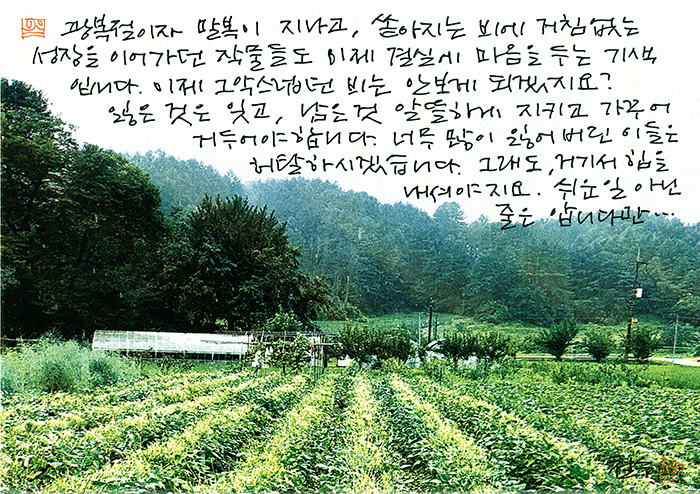 광복절이자 말복이 지나고, 쏟아지는 비에 거침없는
성장을 이어가던 작물들도 이제 결실에 마음을 두는 기색
입니다. 이제 그악스럽던 비는 안보게 되겠지요?
잃은 것은 잊고, 남은것 알뜰하게 지키고 가꾸어
거두어야합니다. 너무 많이 잃어버린 이들은
허탈하시겠습니다. 그래도, 거기서 힘을
내셔야지요. 쉬운일 아닌
줄은 압니다만...